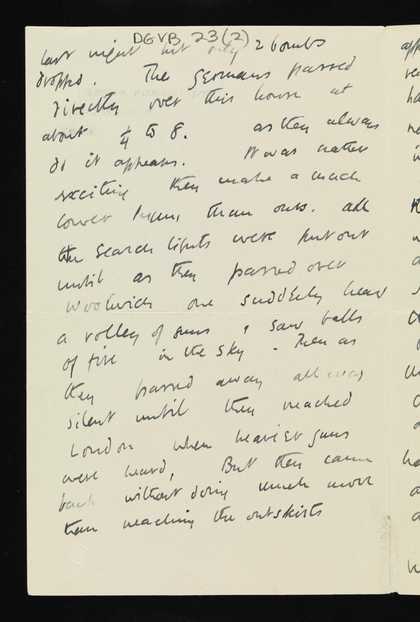 DGVB 23(2)
last night but only 2 bombs
dropped. The Germans passed
directly over this house at
about 1/4 to 8. as they always
do it appears. It was rather
exciting they make a much
lower hum than ours. all
the search lights were put out
until as they passed over
Woolwich one suddenly hear
a volley of guns & saw balls
of fire in the sky. Then as
they passed away all was
silent until they reached
London when heavier guns
were heard, But they came
back without doing much more
than reaching the outskirts